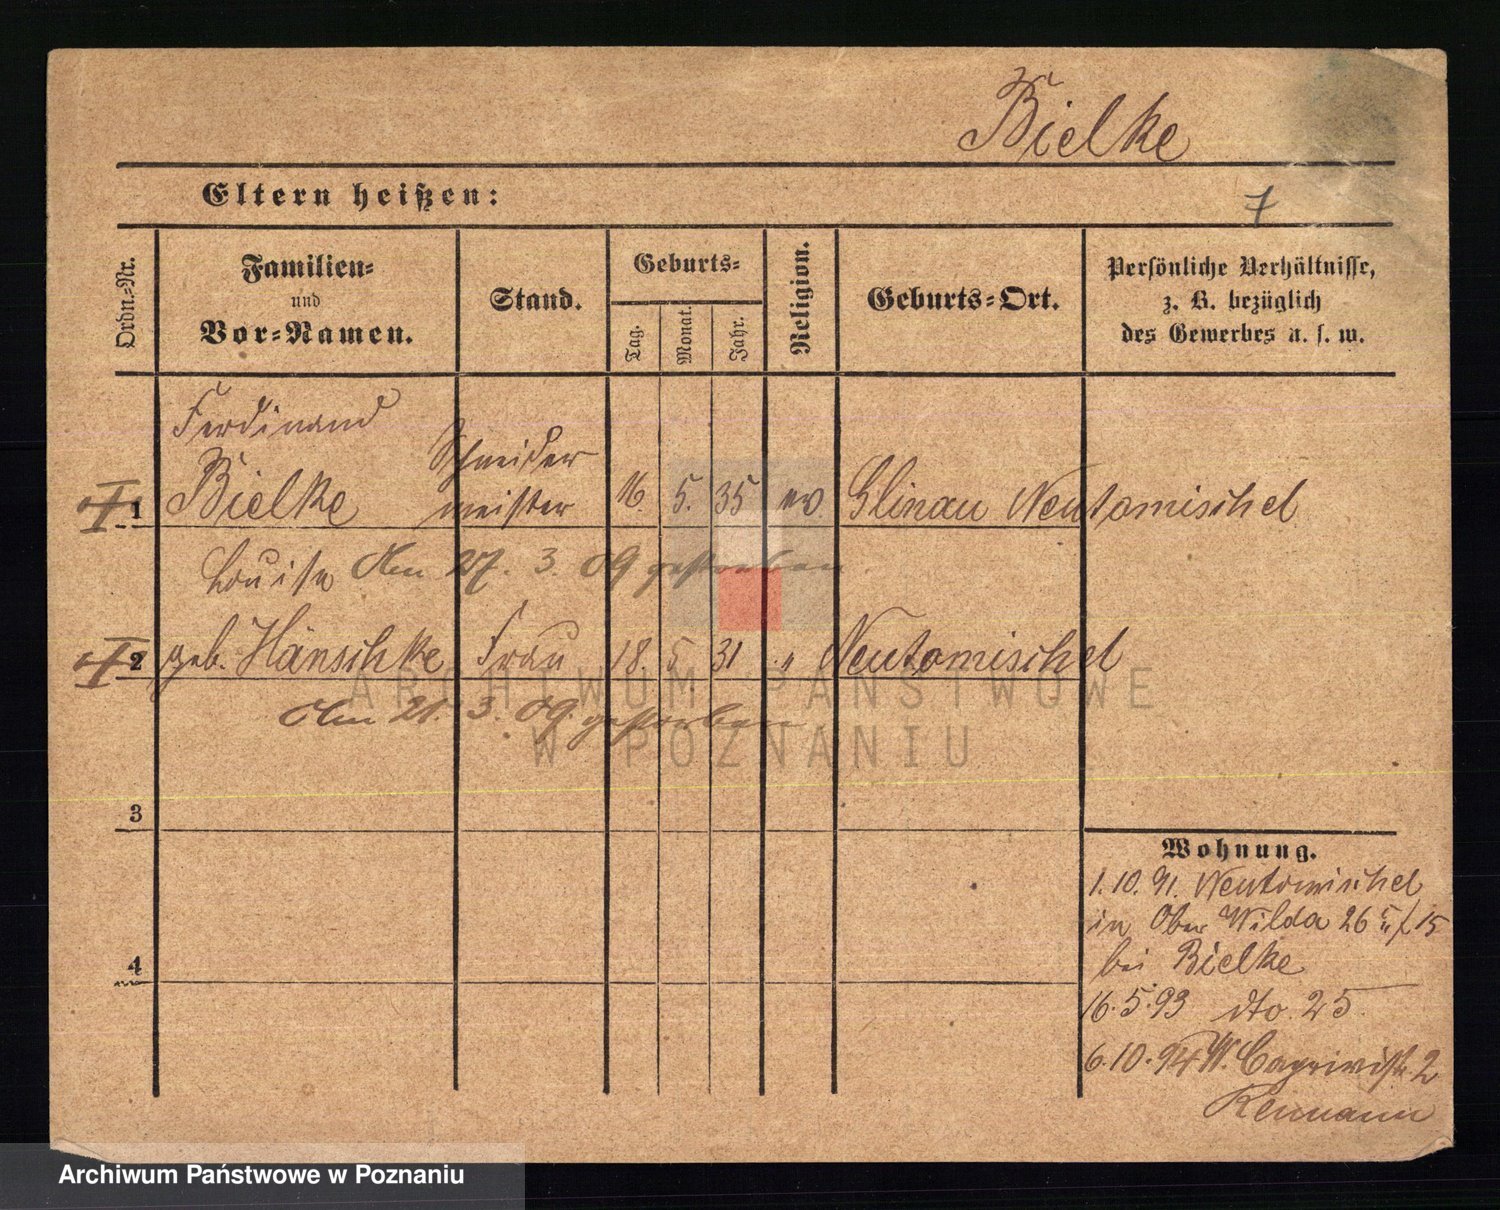 Bielke
Eltern heißen:
7
Ordn.-Nr.
Familien-
und
Vor-Namen.
Stand.
Geburts-
Tag.
Monat.
Jahr.
Religion.
Geburts-Ort.
Persönliche Verhältnisse,
z. B. bezüglich
des Gewerbes u. s. w.
Ferdinand
Schneider
1 Bielke meister 16. 5. 35 ev Glinau Neutomischel
Louise Am 27. 3. 09 gestorben
2 geb. Hänschke Frau 18. 5 31 " Neutomischel
Am 21. 3. 09. gestorben
ARCHIWUM PAŃSTWOWE
W POZNANIU
3
Wohnung.
1.10.91. Neutomischel
in Ober Wilda 26 15
bei Bielke
4
16.5.93 dto. 25
6.10.94 W. Caprivistr. 2
Archiwum Państwowe w Poznaniu